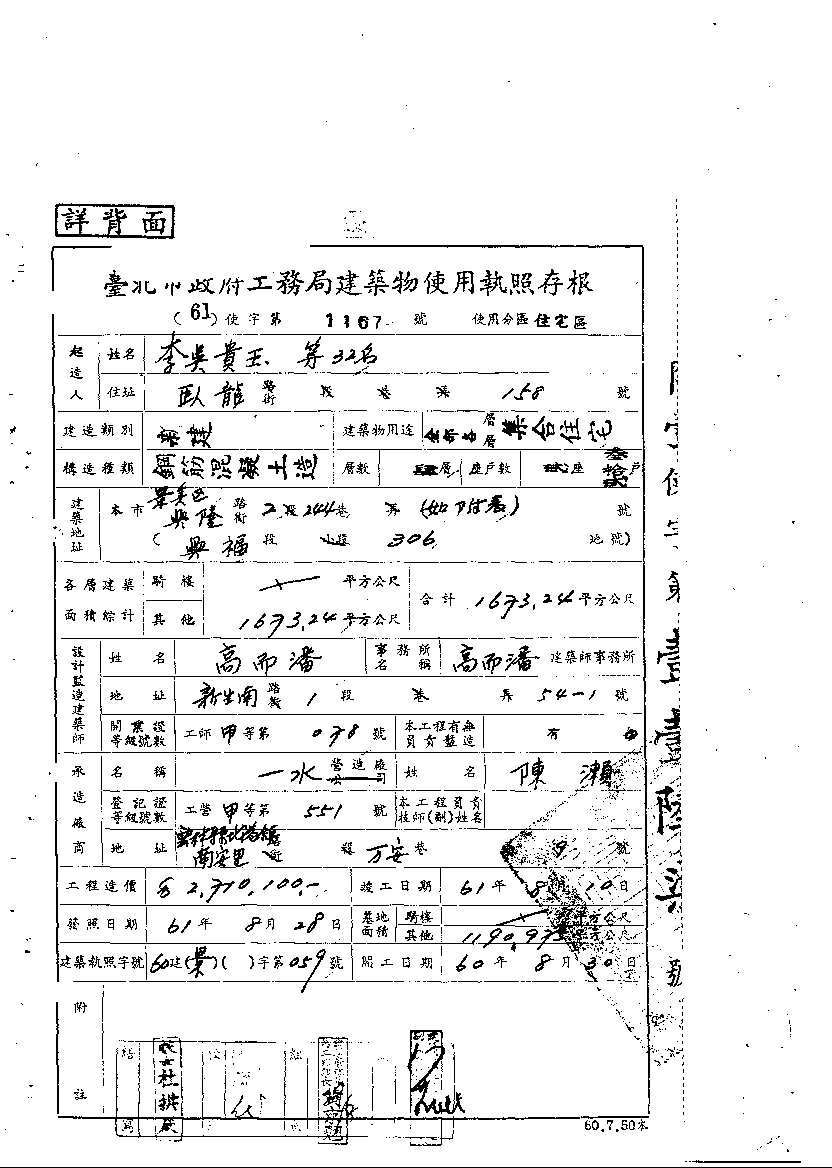 詳背面
臺北市政府工務局建築物使用執照存根
(61)使字第 1167 號 使用分區 住宅區
起造人 姓名 李吳貴玉 等32名
住址 臥龍 路街 段 巷 弄 158 號
建造類別 新建 建築物用途 全部各層 集合住宅
構造種類 鋼筋混凝土造 層數 層 座戶數 座 戶
建築地址 本市 景美區 興隆 路街 2段 244巷 弄 (如附表) 號
( 興福 段 小段 306 地號)
各層建築面積綜計 騎樓 平方公尺
其他 1673.24 平方公尺 合計 1673.24 平方公尺
設計監造建築師 姓名 高而潘 事務所名稱 高而潘 建築師事務所
地址 新生南 路街 1 段 巷 弄 54-1 號
開業證等級號數 工師 甲 等第 078 號 本工程有無負責監造 有
承造廠商 名稱 一水 營造廠公司 姓名 陳瀨
登記證等級號數 工營 甲 等第 551 號 本工程負責技師(副)姓名
地址 南安里 萬安 巷 號
工程造價 2,710,100.- 竣工日期 61年 8月 10日
發照日期 61年 8月 28日 基地面積 騎樓 平方公尺
其他 平方公尺
建築執照字號 60建(景)( )字第059號 開工日期 60年 8月 30日
附註
60.7.50本